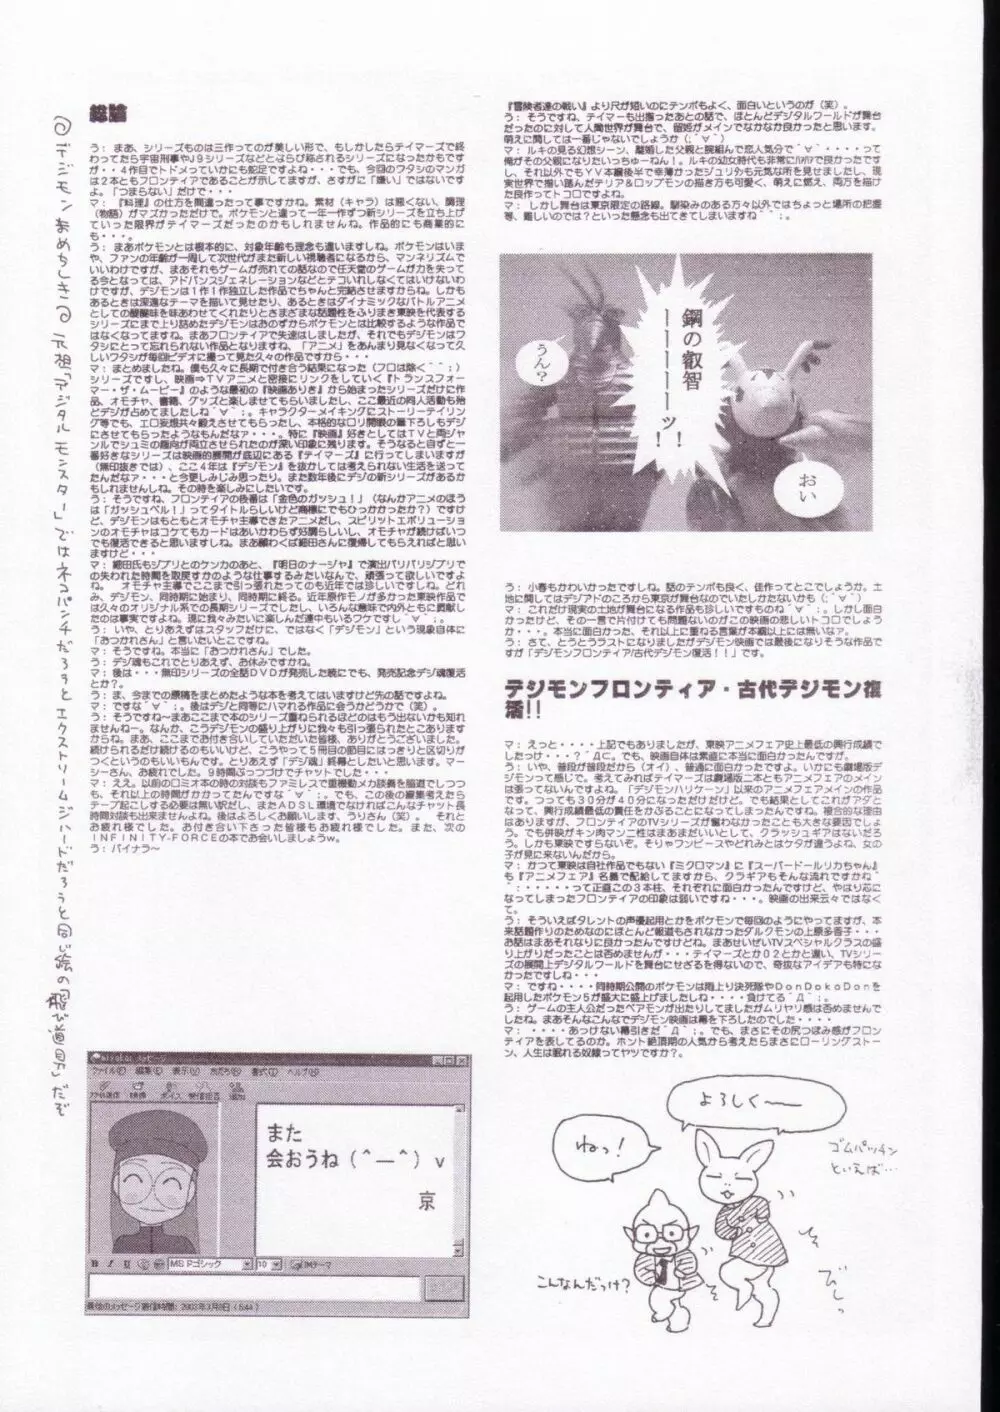 総論
う：まあ、シリーズものは三作ってのが美しい形で、もしかしたらテイマーズで終
わってたら宇宙刑事やJ9シリーズなどとならび称されるシリーズになったかもです
が・・4作目でトドメっていかにも蛇足ですよね・・・でも、今回のワタシのマンガ
は2本ともフロンティアであることが示してますが、さすがに「嫌い」ではないです
よ。「つまらない」だけで・・・
マ：『料理』の仕方を間違ったって事ですかね。素材（キャラ）は悪くない、調理
（物語）がマズかっただけで。ポケモンと違って一年一作ずつ新シリーズを立ち上げ
ていった限界がテイマーズだったのかもしれませんね。作品的にも商業的に
も・・・。
う：まあポケモンとは根本的に、対象年齢も理念も違いますしね。ポケモンはいま
や、ファンの年齢が一周して次世代がまた新しい視聴者になるから、マンネリズムで
いいわけですが、まあそれもゲームが売れての話なので任天堂のゲームが力を失って
る今となっては、アドバンスジェネレーションなどとテコいれしなくてはいけないわ
けですが、デジモンは1作1作独立した作品でちゃんと完結させますからね。しかも
あるときは深遠なテーマを描いて見せたり、あるときはダイナミックなバトルアニメ
としての醍醐味を味あわせてくれたりとさまざまな話題性をふりまき東映を代表する
シリーズにまで上り詰めたデジモンはおのずからポケモンとは比較するような作品で
はなくなってますね。まあフロンティアで失速はしましたが、それでもデジモンはワ
タシにとって忘れられない作品となりますね、「アニメ」をあんまり見なくなって久
しいワタシが毎回ビデオに撮って見た久々の作品ですから・・・
マ：まとめましたね。僕も久々に長期で付き合う結果になった（フロは除く＾＾；）
シリーズですし、映画⇒TVアニメと密接にリンクをしていく『トランスフォー
マー・ザ・ムービー』のような最初の『映画ありき』から始まったシリーズだけに作
品、オモチャ、書籍、グッズと楽しませてもらいましたし、ここ最近の同人活動も殆
どデジが占めてましたしね
特に『映画』好きとしてはTVと両ジャ
ンルでシュミの趣向が両立させられたのが深い印象に残ります。そうなると自ずと一
番好きなシリーズは映画的展開が底辺にある『テイマーズ』に行ってしまいますが
（無印抜きでは）、ここ4年は『デジモン』を抜かしては考えられない生活を送って
たんだなァ・・・と今更しみじみ思ったり。また数年後にデジの新シリーズがあるか
もしれませんしね。その時を楽しみにしたいです。
う：そうですね、フロンティアの後番は「金色のガッシュ！」（なんかアニメのほう
は「ガッシュベル！」ってタイトルらしいけど商標にでもひっかかったか？）ですけ
ど、デジモンはもともとオモチャ主導できたアニメだし、スピリットエボリューショ
ンのオモチャはコケてもカードはあいかわらず好調らしいし、オモチャが続けばいつ
でも復活できると思いますしね。まあ願わくば細田さんに復帰してもらえればと思い
ますけど・・・
マ：細田氏もジブリとのケンカのあと、『明日のナージャ』で演出バリバリジブリで
の失われた時間を取戻すかのような仕事するみたいなんで、頑張って欲しいですよ
ね。　オモチャ主導でここまで引っ張れたってのも近年では珍しいですしね。どれ
み、デジモン、同時期に始まり、同時期に終る。近年原作モノが多かった東映作品で
は久々のオリジナル系での長期シリーズでしたし、いろんな意味で内外ともに貢献し
たのは事実ですよね。現に我々みたいに楽しんだ連中もいるワケですし
う：いや、とりあえずはスタッフだけに、ではなく「デジモン」という現象自体に
「おつかれさん」と言いたいとこですね。
マ：そうですね。本当に「おつかれさん」でした。
う：デジ魂もこれでとりあえず、お休みですかね。
マ：後は・・・無印シリーズの全話DVDが発売した続にでも、発売記念デジ魂復活
とか？。
う：ま、今までの原稿をまとめたような本を考えてはいますけど先の話ですよね。
マ：ですな 。後はデジと同等にハマれる作品に会うかどうかで（笑）。
う：そうですな～まあここまで本のシリーズ重ねられるほどのはもう出ないかも知れ
ませんねー。なんか、こうデジモンの盛り上がりに我々も引っ張られたとこあります
からね。まあ、ここまでお付き合いしていただいた皆様、ありがとうございました。
続けられるだけ続けるのもいいけど、こうやって5冊目の節目にはっきりと区切りが
つくというのもいいもんです。とりあえず「デジ魂」終幕としたいと思います。マー
シーさん、お疲れでした。9時間ぶっつづけでチャットでした・・・
マ：ええ。以前のロミオ本の時の対談もファミレスで重機動メカ談義を脇道でしつつ
も、それ以上の時間がかかってたんですな 。でも、この後の編集考えたら
テープ起こしする必要は無い訳だし、またADSL環境でなければこんなチャット長
時間対談も出来ませんよね。後はよろしくお願いします、うりさん（笑）。　それと
お疲れ様でした。お付き合い下さった皆様もお疲れ様でした。また、次の
INFINITY-FORCEの本でお会いしましょうw。
う：バイナラ～
『冒険者達の戦い』より尺が短いのにテンポもよく、面白いというのが（笑）。
う：そうですね、テイマーも出揃ったあとの話で、ほとんどデジタルワールドが舞台
だったのに対して人間世界が舞台で、留姫がメインでなかなか良かったと思います。
マ：しかし舞台は東京限定の路線。馴染みのある方々以外ではちょっと場所の把握
等、難しいのでは？といった懸念も出てきてしまいますね＾＾；。
うん？
鋼の叡智ーーーーーッ！！
おい
う：小春もかわいかったですしね。話のテンポも良く、佳作ってとこでしょうか。土
地に関してはデジアドのころから東京が舞台なのでいたしかたないかも
マ：これだけ現実の土地が舞台になる作品も珍しいですものね 。しかし面白
かったけど、その一言で片付けても問題ないのがこの映画の悲しいトコロでしょう
か・・・。本当に面白かった、それ以上に重ねる言葉が本編以上には無いなァ。
う：さて、とうとうラストになりましたがデジモン映画では最後になりそうな作品で
すが「デジモンフロンティア/古代デジモン復活！！」です。
デジモンフロンティア・古代デジモン復
活!!
マ：えっと・・・・上記でもありましたが、東映アニメフェア史上最低の興行成績で
したっけ・・・？ でも、映画自体は素直に本当に面白かったんですが。
う：いや、普段が普段だから（オイ）、普通に面白かったですよ。いかにも劇場版デ
ジモンって感じで。考えてみればテイマーズは劇場版二本ともアニメフェアのメイン
は張ってないんですよね。「デジモンハリケーン」以来のアニメフェアメインの作品
です。つっても30分が40分になっただけだけど。でも結果としてこれがアダと
なって、興行成績最低の責任をかぶることになってしまったんですね。複合的な理由
はありますが、フロンティアのTVシリーズが奮わなかったことも大きな要因でしょ
う。でも併映がキン肉マン二世はまあまだいいとして、クラッシュギアはないだろ
う。しかも東映ですらないぞ。そりゃワンピースやどれみとはケタが違うよね、女の
子が見に来ないんだから。
マ：かつて東映は自社作品でもない『ミクロマン』に『スーパードールリカちゃん』
も『アニメフェア』名義で配給してますから、クラギアもそんな流れですかね＾
＾；・・・・・って正直この3本柱、それぞれに面白かったんですけど、やはり芯に
なってしまったフロンティアの印象は弱いですね・・・。映画の出来云々ではなく
て。
う：そういえばタレントの声優起用とかをポケモンで毎回のようにやってますが、本
来話題作りのためなのにほとんど報道もされなかったダルクモンの上原多香子・・・
お話はまあそれなりに良かったんですけどね。まあせいぜいTVスペシャルクラスの盛
り上がりだったことは否めませんが・・・テイマーズとか02とかと違い、TVシリー
ズの展開上デジタルワールドを舞台にせざるを得ないので、奇抜なアイデアも特にな
かったですしね・・・
マ：ですね・・・・同時期公開のポケモンは雨上り決死隊やDonDokoDonを
起用したポケモン5が盛大に盛上げましたしね・・・・負けてる
う：ゲームの主人公だったベアモンが出たりしてましたがムリヤリ感は否めませんで
したね。まあそんなこんなでデジモン映画は幕を下ろしたのでした・・・・
マ：・・・・あっけない幕引きだ 。でも、まさにその尻つぼみ感がフロン
ティアを表してるのか。ホント絶頂期の人気から考えたらまさにローリングストー
ン、人生は眠れる奴隷ってヤツですか？。
よろしく～
ねっ！
ゴムパッチン
といえば…
こんなんだっけ？
びしっ
メッセージ
ファイル(F) 編集(E) 表示(V) おだち(B) 書式(T) ヘルプ(H)
ファイル送信 映像 ボイス 受信拒否 追加
また
会おうね（＾―＾）v
京
B I U
MS Pゴシック
10
IMテーマ
最後のメッセージ着信時間: 2003年3月9日 (5:44)
@デジモンおめちしき@ 元祖「デジタルモンスター」ではネコパンチだろうとエクストリームジハードだろうと同じ絵の「飛び道具」だぞ